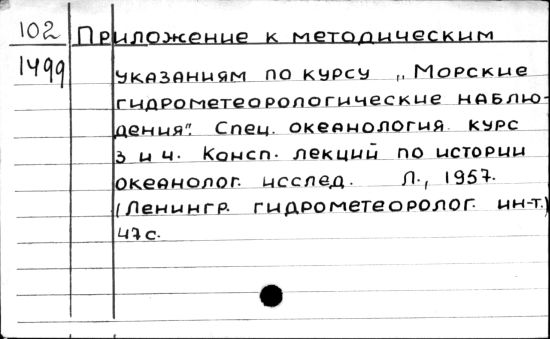 102 Приложение к методическим
1499 указаниям по курсу „Морские
гидрометеорологические наблю-
дения". Спец. океанология. курс
3 и 4. Консп. лекций по истории
океанолог. исслед. Л., 1957.
(Ленингр. гидрометеоролог. ин-т.)
47 с.